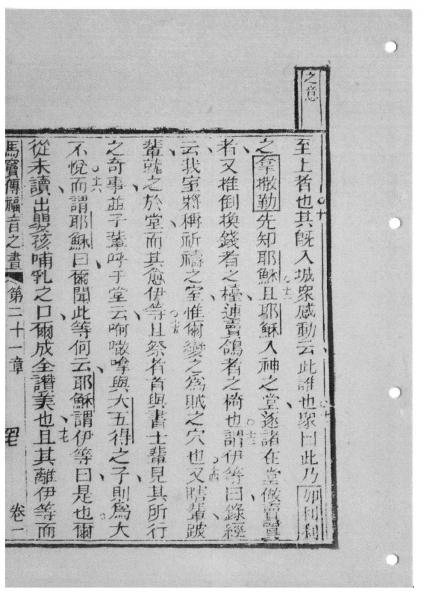 之意
至上者也其旣入城衆感動云此誰也衆曰此乃加利利
之拿撒勒先知耶穌且耶穌入神之堂逐諸在堂做賣買
者又推倒換錢者之檯連賣鴿者之櫈也謂伊等曰錄經
云我室將稱祈禱之室惟爾變之爲賊之穴也又瞎輩跛
輩就之於堂而其愈伊等且祭者首與書士輩見其所行
之奇事並子輩呼于堂云與大五得之子則爲大
不悅而謂耶穌曰爾聞此等何云耶穌謂伊等曰是也爾
從未讀出嬰孩哺乳之口爾成全讚美也且其離伊等而
馬竇傳福音之書 第二十一章 卷一